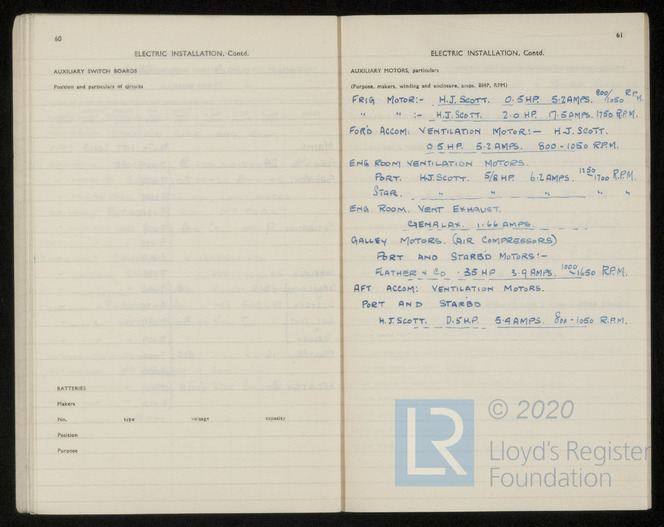 60
ELECTRIC INSTALLATION, Contd.
AUXILIARY SWITCH BOARDS
Position and particulars of circuits
BATTERIES
Makers
No. type voltage capacity
Position
Purpose
61
ELECTRIC INSTALLATION, Contd.
AUXILIARY MOTORS, particulars
(Purpose, makers, winding and enclosure, amps, BHP, RPM)
FRIG MOTOR:- H.J. SCOTT. 0.5 HP. 5.2 AMPS. 800/1050 R.P.M.
" " :- H.J. SCOTT. 2.0 HP. 17.5 AMPS. 1750 R.P.M.
FOR'D ACCOM: VENTILATION MOTOR:- H.J. SCOTT.
0.5 HP. 5.2 AMPS. 800-1050 RPM.
ENG ROOM VENTILATION MOTORS.
PORT. H.J. SCOTT. 5/8 HP. 6.2 AMPS. 1250-1700 R.P.M.
STAR. " " " " "
ENG ROOM. VENT EXHAUST.
GENALAX. 1.66 AMPS.
GALLEY MOTORS. (AIR COMPRESSORS)
PORT AND STARB'D MOTORS:-
FLATHER & CO .35 HP 3.9 AMPS. 1000-1650 R.P.M.
AFT ACCOM: VENTILATION MOTORS.
PORT AND STARBD
H.J. SCOTT. 0.5 H.P. 5.4 AMPS. 800-1050 R.P.M.
LR © 2020
Lloyd's Register
Foundation